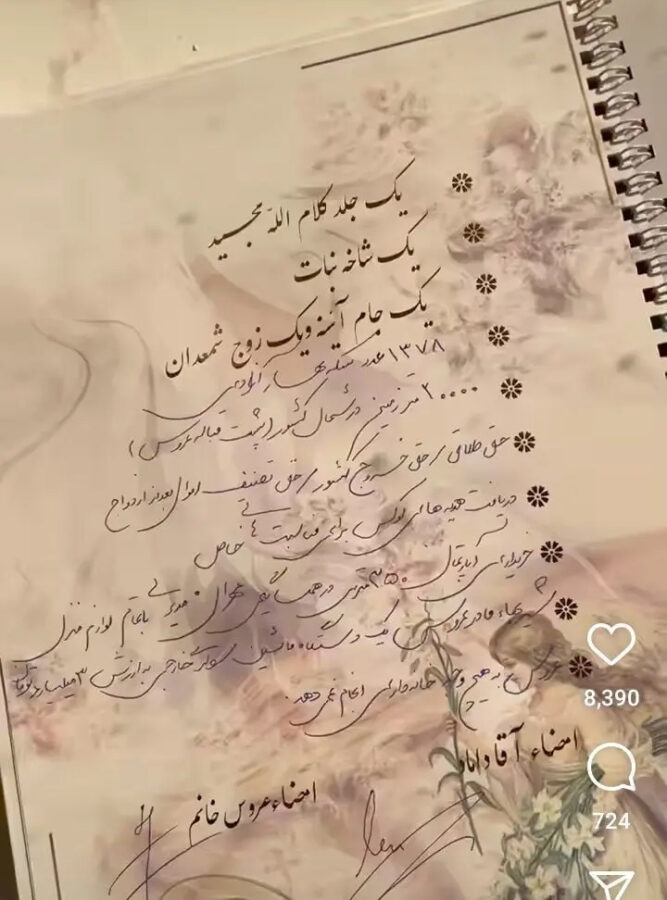 یک جلد کلام الله مجید
یک شاخه نبات
یک جام آئینه و یک زوج شمعدان
۱۳۷۸ عدد سکه بهار آزادی
۲۰۰۰۰ متر زمین در شمال کشور (پشت قباله عروس)
حق طلاق، حق خروج کشور، حق تصنیف اموال بعد از ازدواج
دریافت هدیه های لوکس برای مناسبت های خاص
خریداری آپارتمان ۳۵۰ متری در همسایگی با تمام لوازم منزل
شیربهاء مادر عروس یک دستگاه ماشین خارجی به ارزش ۳ میلیارد تومان
عروس به هیچ وجه خانه داری انجام نمی دهد.
امضاء آقا داماد
امضاء عروس خانم
8,390
724